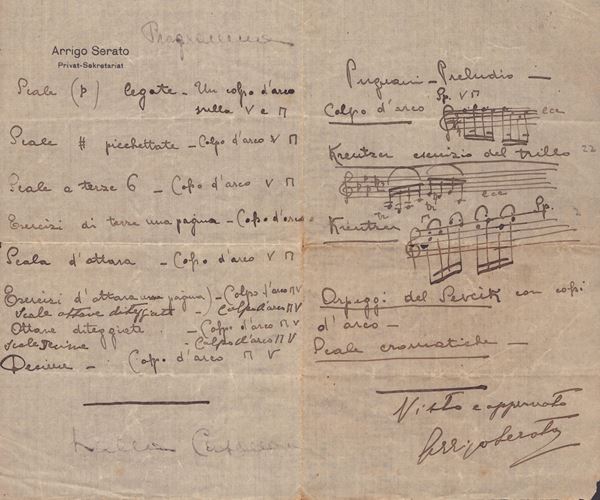 Programma
Arrigo Serato
Privat-Sekretariat
Scale (p) legate - Un colpo d'arco
sulla V e П
Scale # picchettate - Colpo d'arco V П
Scale a terze 6 - Colpo d'arco V П
Esercizi di terze una pagina - Colpo d'arco
Scala d'ottava - Colpo d'arco V П
Esercizi d'ottava una pagina) - Colpo d'arco П V
Scale ottave diteggiate - Colpo d'arco П V
Ottave diteggiate . - Colpo d'arco П V
Scale Decime - Colpo d'arco П V
Decime - Colpo d'arco П V
Pugnani - Preludio -
Sp. V П
Colpo d'arco ecc
Kreutzer esercizio del trillo 22
tr tr ecc
Kreutzer П Sp.
Arpeggi del Sevcik con colpi
d'arco -
Scale cromatiche -
Visto e approvato
Arrigo Serato